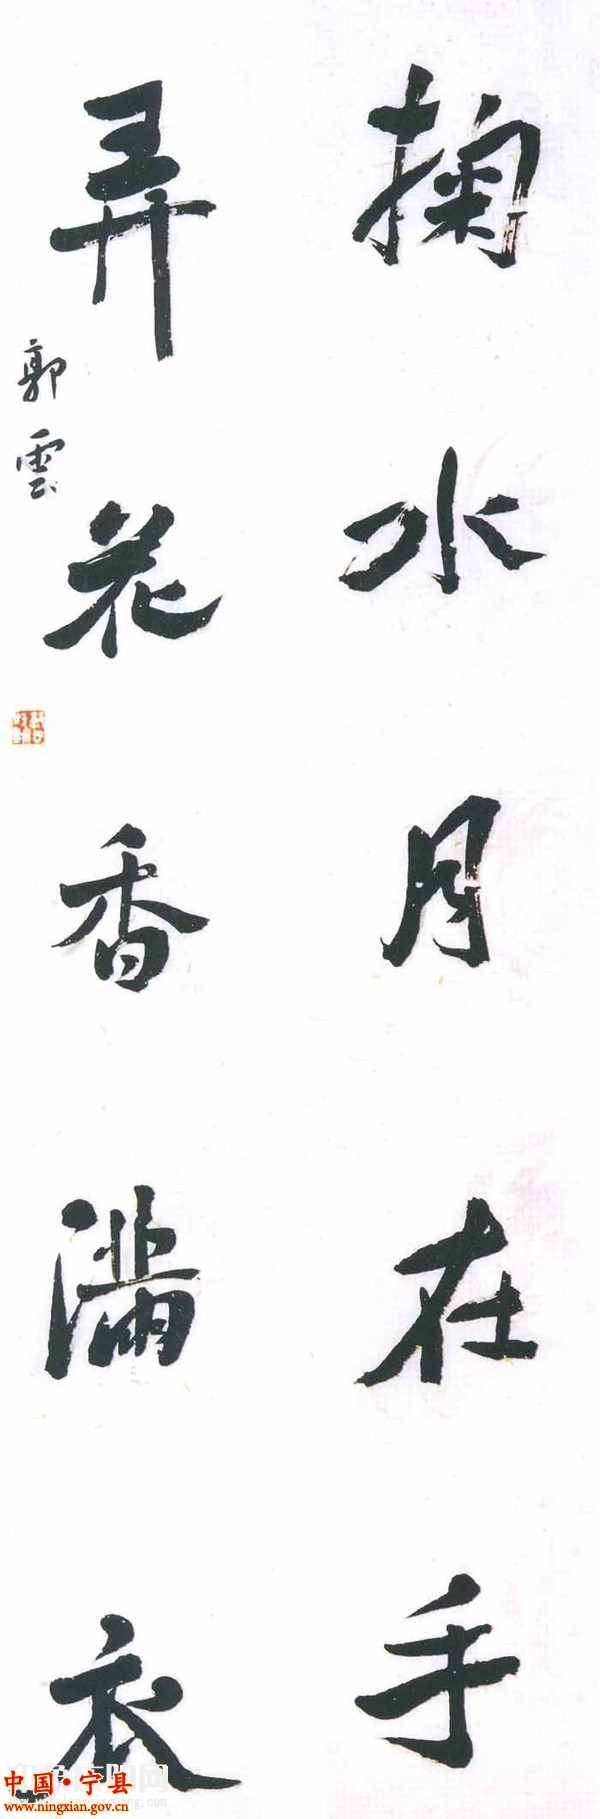 掬水月在手
弄花香滿衣
郭雲
中国·宁县
www.ningxian.gov.cn